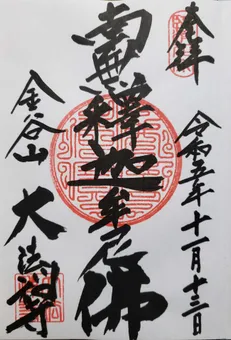 奉拝
令和五年十一月十三日
南無釋迦牟尼佛
金谷山
大